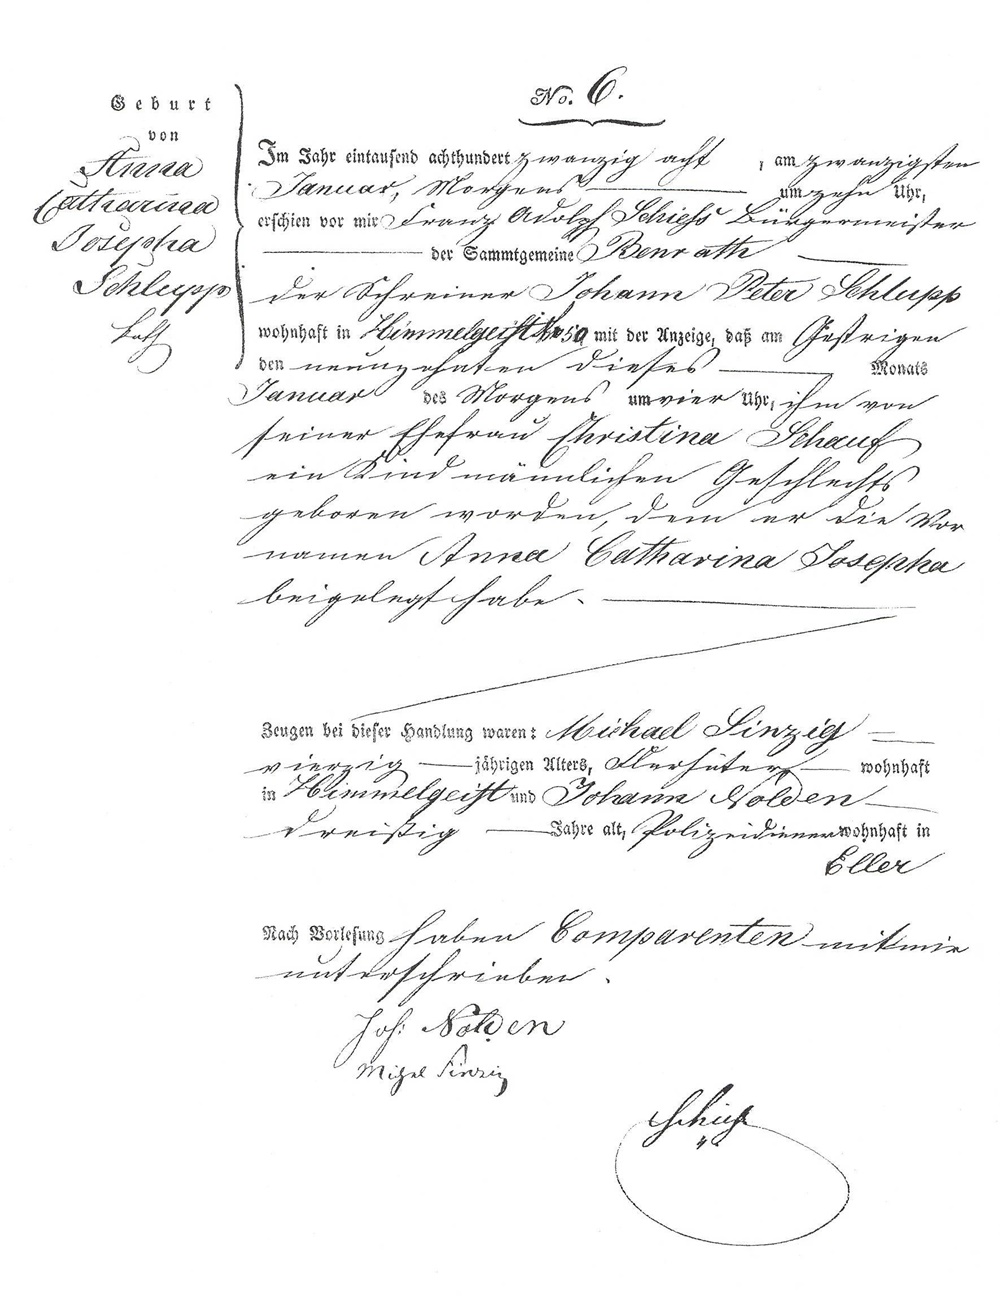 No. 6.
Geburt
von
Anna
Catharina
Josepha
Schlupp
kath
Im Jahr eintausend achthundert zwanzig acht, am zwanzigsten
Januar, Morgens um zehn Uhr,
erschien vor mir Franz Adolph Schiehs Bürgermeister
der Sammtgemeine Benrath
der Schreiner Johann Peter Schlupp
wohnhaft in Himmelgeist No 50 mit der Anzeige, daß am Gestrigen
den neunzehnten dieses Monats
Januar des Morgens um vier Uhr, ihm von
seiner Ehefrau Christina Schauf
ein Kind männlichen Geschlechts
geboren worden, dem er die Vor
namen Anna Catharina Josepha
beigelegt habe.
Zeugen bei dieser Handlung waren: Michael Sinzig
vierzig jährigen Alters, Flurhüter wohnhaft
in Himmelgeist und Johann Nolden
dreißig Jahre alt, Polizeidiener wohnhaft in
Eller
Nach Vorlesung haben Comparenten mit mir
unterschrieben.
Joh: Nolden
Migel Sinzig
Schiehs